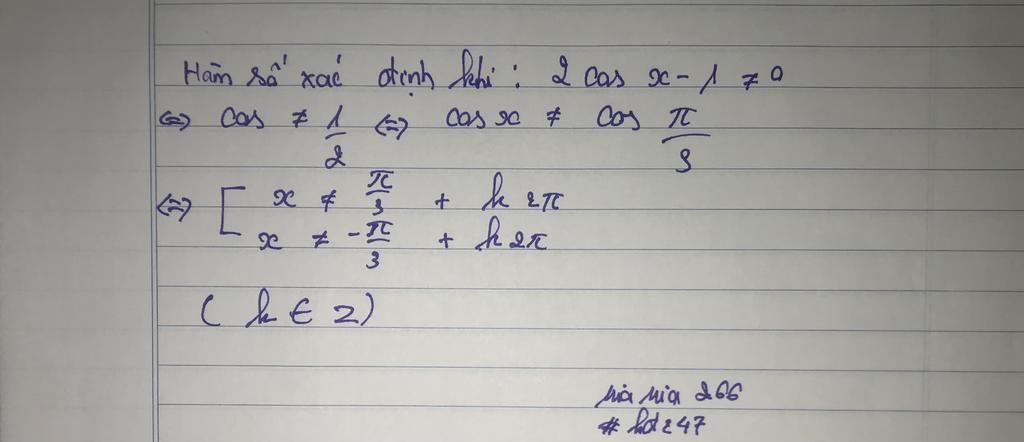 Hàm số xác định khi: 2 cos x - 1 ≠ 0
⇔ cos ≠ 1/2 ⇔ cos x ≠ cos π/3
⇔ [ x ≠ π/3 + k2π
x ≠ -π/3 + k2π
( k ∈ Z)
266
#